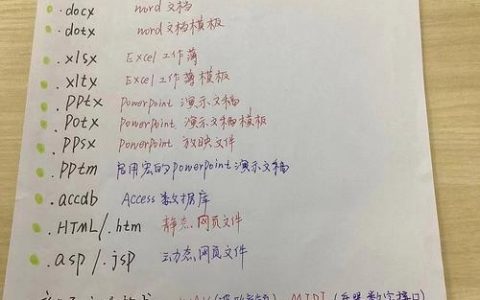 .docx word文档
.dotx word文档模板
.xlsx Excel工作薄
.xltx Excel工作薄模板
.PPtx Powerpoint 演示文稿
.Potx Powerpoint 演示文稿模板
.PPsx Powerpoint 放映文件
.PPtm 启用宏的Powerpoint演示文稿
.accdb Access数据库
.HTML/.htm 静态网页文件
.asp/.jsp 动态网页文件
MIDI